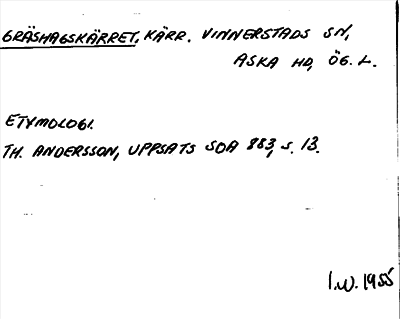 GRÄSHAGSKÄRRET, KÄRR. VINNERSTADS SN,
ASKA HD, ÖG. L.
ETYMOLOGI.
TH. ANDERSSON, UPPSATS SOA 883, s. 13.
I.W. 1955